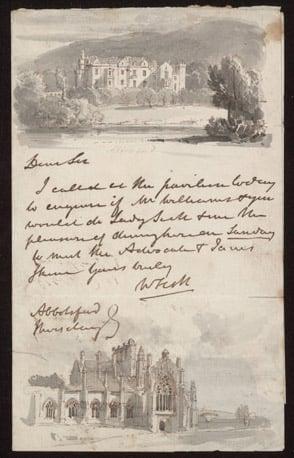 Dear Sir
I called at the pavilion today
to enquire if Mr Williams & you
would do Lady Scott & me the
pleasure of dining here on Sunday
to meet the Advocate & James
Skene Yours truly
W Scott
Abbotsford
Thursday
Abbotsford